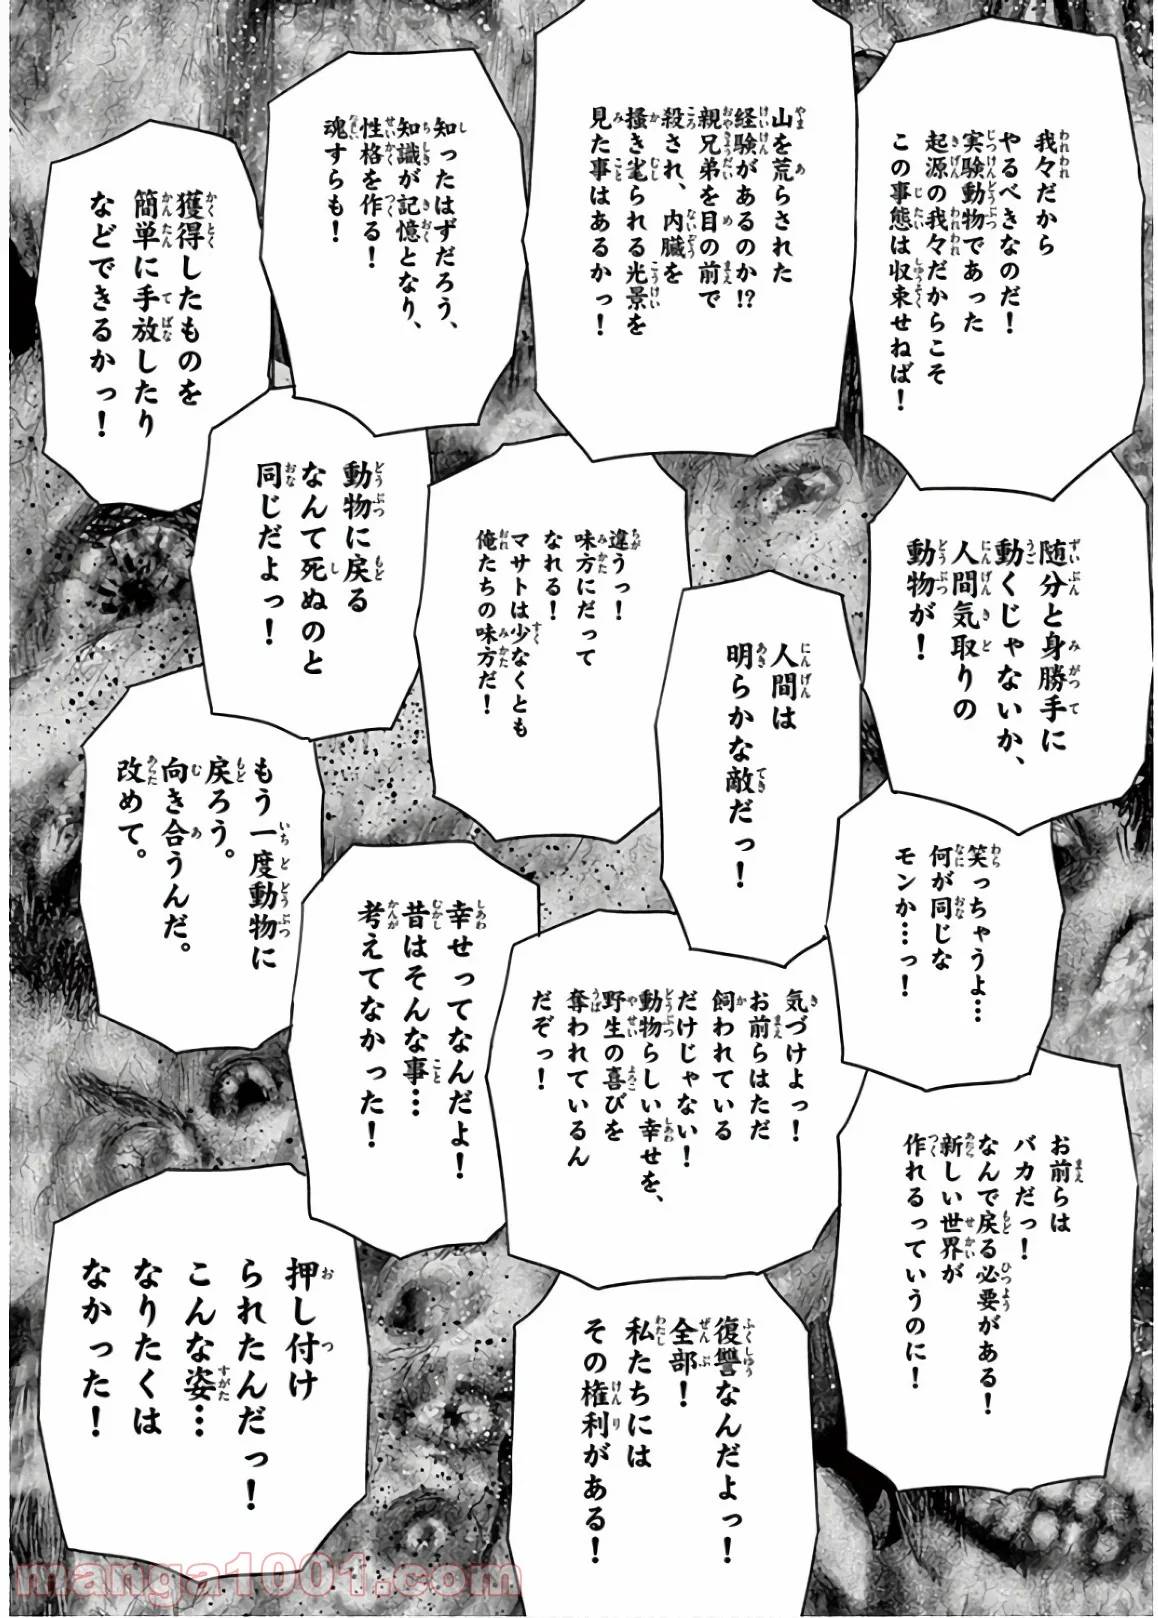 我々だから
やるべきなのだ！
実験動物であった
起源の我々だからこそ
この事態は収束せねば！
山を荒らされた
経験があるのか!?
親兄弟を目の前で
殺され、内臓を
掻き毟られる光景を
見た事はあるかっ！
知ったはずだろう、
知識が記憶となり、
性格を作る！
魂すらも！
獲得したものを
簡単に手放したり
などできるかっ！
随分と身勝手に
動くじゃないか、
人間気取りの
動物が！
人間は
明らかな敵だっ！
違うっ！
味方にだって
なれる！
マサトは少なくとも
俺たちの味方だ！
動物に戻る
なんて死ぬのと
同じだよっ！
もう一度動物に
戻ろう。
向き合うんだ。
改めて。
笑っちゃうよ…
何が同じな
モンか…っ！
気づけよっ！
お前らはただ
飼われている
だけじゃない！
動物らしい幸せを、
野生の喜びを
奪われているん
だぞっ！
幸せってなんだよ！
昔はそんな事…
考えてなかった！
お前らは
バカだっ！
なんで戻る必要がある！
新しい世界が
作れるっていうのに！
復讐なんだよっ！
全部！
私たちには
その権利がある！
押し付け
られたんだっ！
こんな姿…
なりたくは
なかった！
manga1001.com